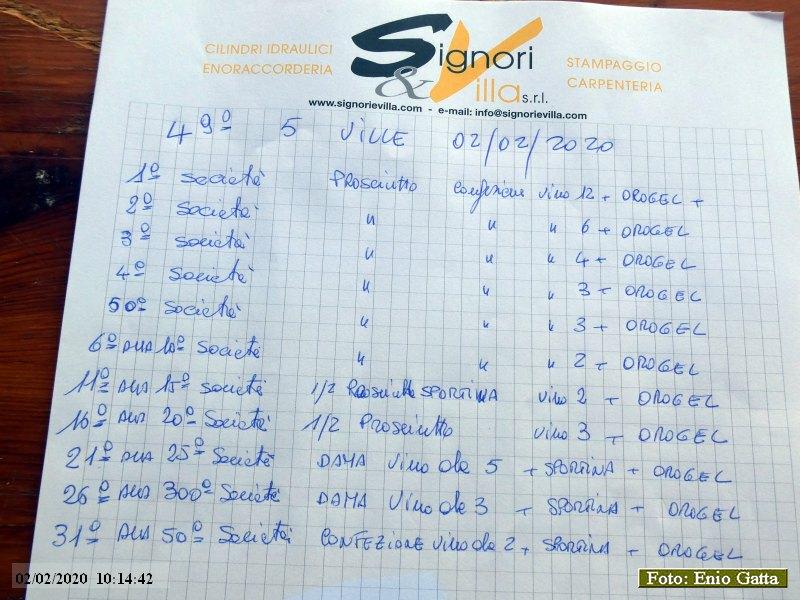 CILINDRI IDRAULICI
ENORACCORDERIA
Signori & Villa s.r.l.
STAMPAGGIO
CARPENTERIA
www.signorievilla.com - e-mail: info@signorievilla.com
49º 5 VILLE 02/02/2020
1º società Prosciutto confezione vino 12 + OROGEL +
2º Società " " " 6 + OROGEL
3º Società " " " 4 + OROGEL
4º Società " " " 3 + OROGEL
50º Società " " " 3 + OROGEL
6º alla 10º Società " " " 2 + OROGEL
11º alla 15º società 1/2 Prosciutto SPORTINA vino 2 + OROGEL
16º alla 20º Società 1/2 Prosciutto vino 3 + OROGEL
21º alla 25º Società DAMA Vino da 5 + SPORTINA + OROGEL
26º alla 300º Società DAMA Vino da 3 + SPORTINA + OROGEL
31º alla 50º Società CONFEZIONE vino da 2 + SPORTINA + OROGEL
02/02/2020 10:14:42
Foto: Enio Gatta